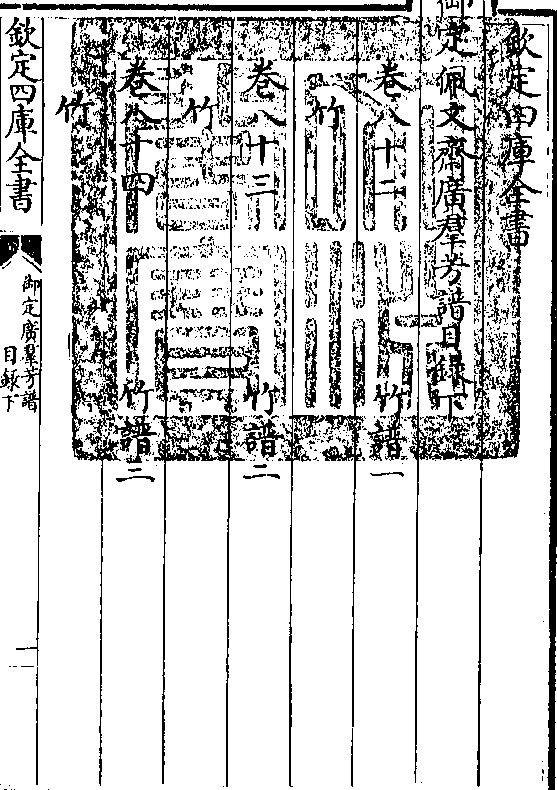 欽定四庫全書
御定佩文齋廣羣芳譜目録下
卷八十二 竹譜一
竹
卷八十三 竹譜二
竹
卷八十四 竹譜三
竹
欽定四庫全書
御定廣羣芳譜
目録下
一